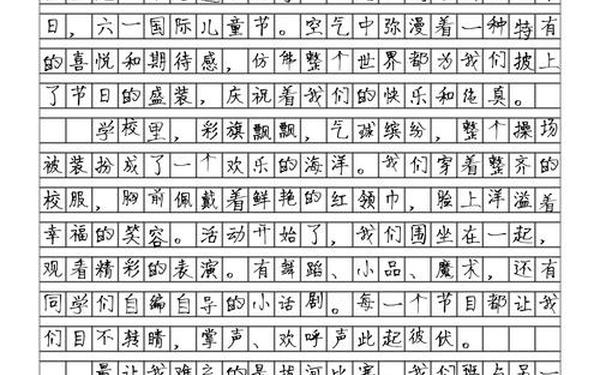 日，六一国际儿童节。空气中弥漫着一种特有
的喜悦和期待感，仿佛整个世界都为我们披上
了节日的盛装，庆祝着我们的快乐和纯真。
学校里，彩旗飘飘，气球缤纷，整个操场
被装扮成了一个欢乐的海洋。我们穿着整齐的
校服，胸前佩戴着鲜艳的红领巾，脸上洋溢着
幸福的笑容。活动开始了，我们围坐在一起，
观看精彩的表演。有舞蹈、小品、魔术，还有
同学们自编自导的小话剧。每一个节目都让我
们目不转睛，掌声、欢呼声此起彼伏。
最让我难忘的是拔河比赛
我们班与另一